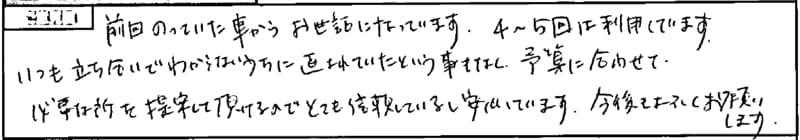 前回のっていた車からお世話になっています。4〜5回は利用しています。
いつも立ち合いでわからないうちに直されていたという事もなし、予算に合わせて、
必要な所を提案して頂けるのでとても信頼しているし安心しています。今後もよろしくお願い
します。